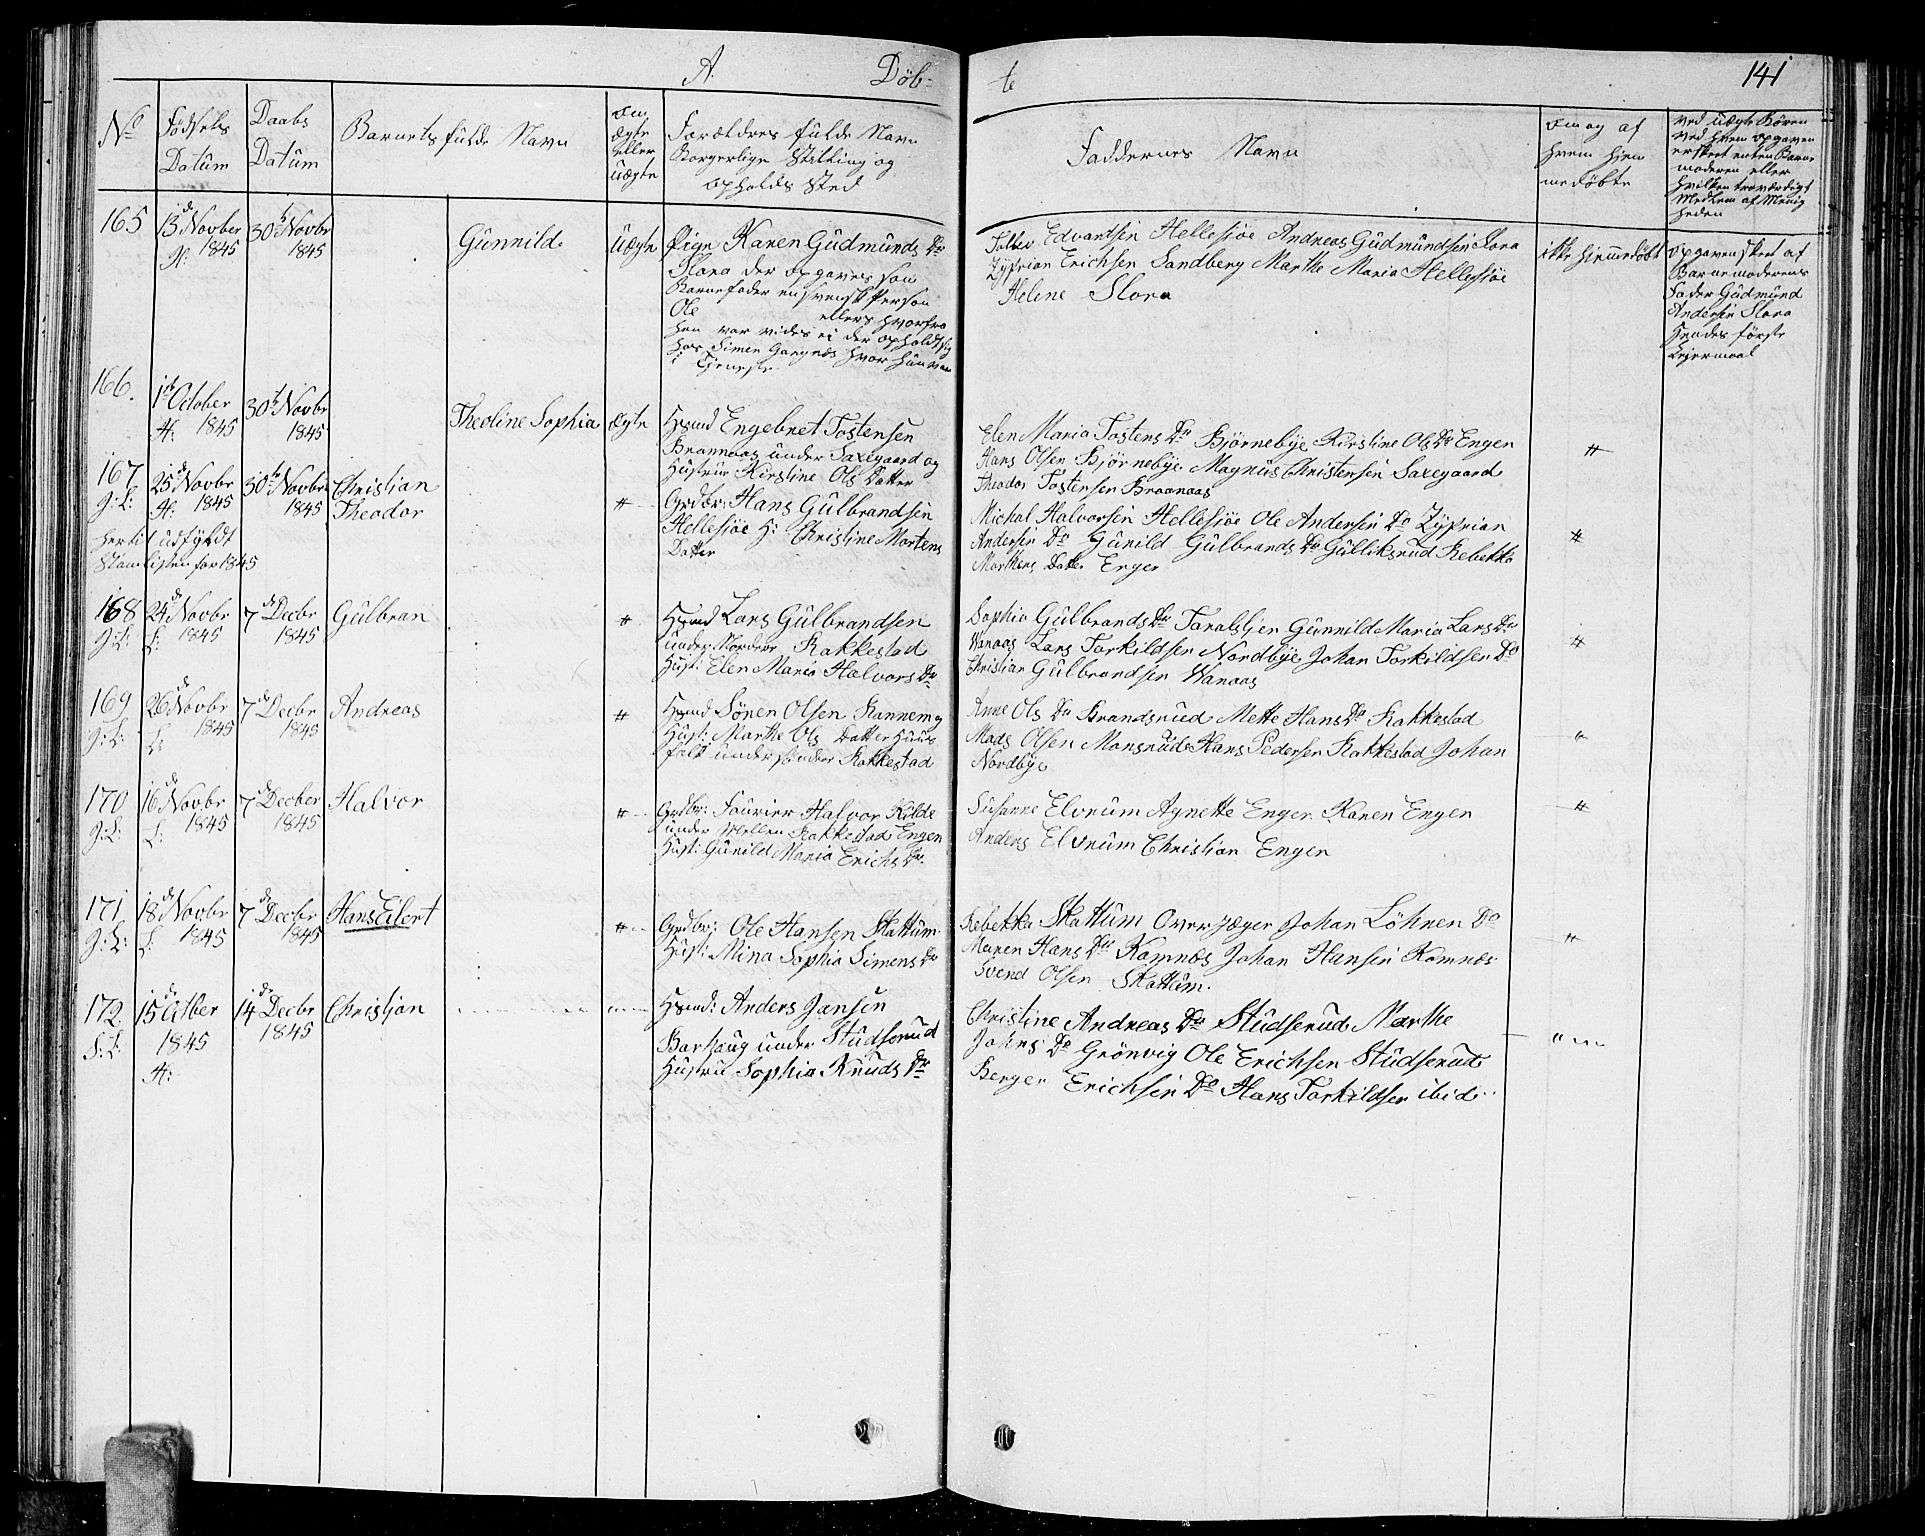 A. Döb-
te 141
No
Födsels Datum
Daabs Datum
Barnets fulde Navn
om ægte eller uægte
Forældres fulde Navn Borgerlige Stilling og opholds Sted
Faddernes Navn
om og af hvem hjem medöbte
ved uægte Bören ved hvem opgaven er skeet enten Barne moderen eller hvilken troværdigt Medlem af Menig heden
165
13de Novber 1845
H:
30te Novbr 1845
Gunnild
Uægte
Pige Karen Gudmunds Dr
Slora der opgaves som
Barnefader en svensk Person
Ole ellers hvorfra
han var vides ei der opholdt sig
hos Simen Gangnæs hvor hun var
i Tjeneste
Edvardsen Hellesiøe Andreas Gudmundsen Slora
Zyprian Erichsen Sandberg Marthe Maria Hellesiøe
Helene Slora
ikke hjemmedöbt
opgaven skeet af
Barnemoderens
Fader Gudmund
Andersen Slora
Hendes förste
Leiermaal
166.
1te October
H: 1845
30te Novbr
1845
Theoline Sophia
Ægte
Hsmd Engebret Tostensen
Braanaas under Saxegaard og
Hustrue Kirstine Ols Datter
Elen Maria Tostens Dr Bjørnebye Kirstine Ols Dr Engen
Hans Olsen Bjørnebye Magnus Christensen Saxegaard
Theodor Tostensen Braanaas
"
167
J: L:
25de Novbr
H: 1845
30te Novbr
1845
Christian
Theodor
"
Grdbr: Hans Gulbrandsen
Hellesiøe H: Christine Mortens
Datter
Michal Halvorsen Hellesiøe Ole Andersen Do Zyprian
Andersen Do Gunild Gulbrands Dr Gulliksrud Rebekka
Marthens Datter Enger
"
hertil udfyldt
Stamlisten for 1845
168
J: L:
24de Novbr
L: 1845
7de Decbr
1845
Gulbran
"
Hsmd Lars Gulbrandsen
under Nordere Rakkestad
Hust: Elen Maria Halvors Dr
Sophia Gulbrands Dr Taralstien Gunnild Maria Lars Dr
Wanaas Lars Torkildsen Nordbye Johan Torkildsen Do
Christian Gulbrandsen Wanaas
"
169
J: L:
26de Novbr
L: 1845
7de Decbr
1845
Andreas
"
Hsmd Sören Olsen
Hust: Marthe Ols Datter Huus
folk under söndere Rakkestad
Anne Ols Dr Brandsrud Mette Hans Dr Rakkestad
Mads Olsen Monsrud Hans Pedersen Rakkestad Johan
Nordbye
"
170
J: L:
16de Novbr
L: 1845
7de Decber
1845
Halvor
"
Grdbr: Fourier Halvor Kilde
under Mellem Rakkestad Engen
Hust: Gunild Maria Erichs Dr.
Susanne Elvrum Agnette Enger Karen Engen
Anders Elvrum Christian Engen
"
171
J: L:
18de Novbr
L: 1845
7de Decbr
1845
Hans Eilert
"
Grdbr: Ole Hansen Skattum
Hust: Mina Sophia Simens Dr
Rebekka Skattum Overjæger Johan Löhnen Do
Maren Hans Dr Komnæs Johan Hansen Komnæs
Svend Olsen Skattum.
"
172
S: L:
15de Octber
1845
H:
14de Decbr
1845
Christian
"
Hsmd: Anders Jansen
Barhaug under Studserud
Hustru Sophia Knuds Dr
Christine Andreas Dr Studserud Marthe
Johns Dr Grönvig Ole Erichsen Studserud
Berger Erichsen Do Hans Torkildsen ibid..
"